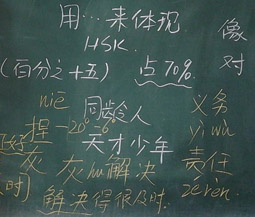 用…来体现 像
HSK 对
(百分之十五) 点70%
niē 同龄人 义务
捏 -20° -6° yì wù
天才少年 责任
灰 灰huī 解决 zérèn.
时) 解决得很及时.